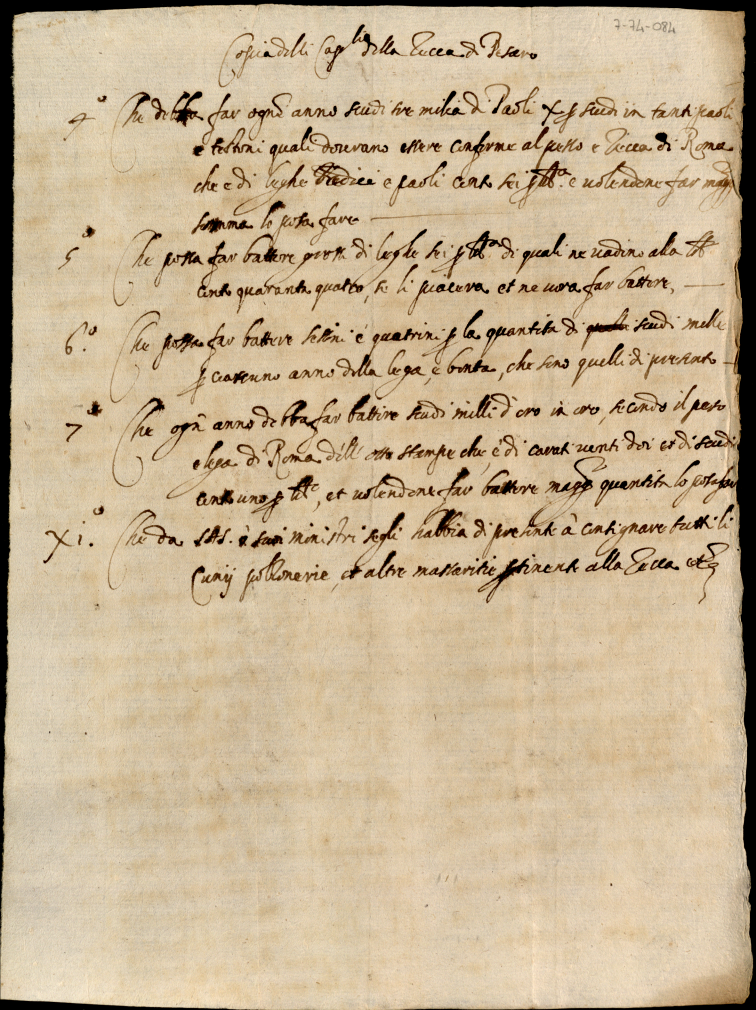 7-74-084
Copia delli Cap.li della Zecca di Pesaro
4° Che debba far ogni anno scudi tre milia di Paoli X p scudi in tanti paoli
e testoni quali doverano essere conforme al peso e Zecca di Roma
che è di leghe undici e paoli cento sei p lib.a e volendone far magg.r
somma lo possa fare
5° Che possa far battere grossi di leghe sei p lib.a di quali ne vadino alla lib.a
cento quaranta quatro, se li piacerà et ne vorà far battere,
6.° Che possa far battere sesini è quatrini p la quantità di scudi mille
p ciascuno anno della lega, e bontà, che sono quelli di presente
7° Che ogn' anno debba far battere scudi milli d'oro in oro, secondo il peso
e lega di Roma dell' otto stampe che, è di carati venti doi et di scudi
cento uno p lib.a, et volendone far battere magg.r quantità lo possa far
XI.° Che da S.A.S. ò suoi ministri segli habbia di presente à consignare tutti li
Cunij pollonerie, et altre massaritie ptinenti alla Zecca et.